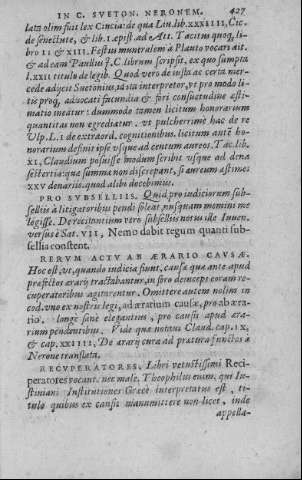 IN C. SVETON. NERONEM. 427
lata olim fuit lex Cincia: de qua Liu. lib. xxxiiii, Cic.
de senectute, & lib. 1. epist. ad Att. Tacitus quoq; li-
bro 11 & xiii. Festus muneralem à Plauto vocari ait.
& ad eam Paullus J. C. librum scripsit, ex quo sumpta
l. xxii titulo de legib. Quod vero de iusta ac certa mer-
cede adijcit Suetonius, id ita interpretor, vt pro modo li-
tis proq; aduocati facundia & fori consuetudine aesti-
matio ineatur: dummodo tamen licitum honorarium
quantitas non egrediatur. vt pulcherrimè hac de re
Vlp. l. 1 de extraord. cognitionibus. licitum autē ho-
norarium definit ipse vsque ad centum aureos. Tac. lib.
xi, Claudium posuisse modum scribit vsque ad dena
sestertia: quae summa non discrepant, si aureum aestimes
xxv denariis. quod alibi docebimus.
PRO SVBSELLIIS. Quid pro iudiciorum sub-
selliis à litigatoribus pendi soleat, nusquam memini me
legisse. De recitantium vero subselliis notus ille Iuuen.
versus è Sat. vii, Nemo dabit regum quanti sub-
sellia constent.
RERVM ACTV AB AERARIO CAVSAS.
Hoc est, vt, quando iudicia fiunt, causae quae ante apud
praefectos aerarij tractabantur, in foro deinceps coram re-
cuperatoribus agitarentur. Omittere autem nolim in
cod. vno ex nostris legi, ad aerarium causas, pro ab aera-
rio. longè sane elegantius, pro causis apud aera-
rium pendentibus. Vide quae notaui Claud. cap. ix,
& cap. xxiiii, De aerarij cura ad praetura functos à
Nerone translata.
RECVPERATORES. Libri vetustissimi Reci-
peratores vocant. nec male. Theophilus enim, qui Iu-
stiniani Institutiones Graecè interpretatus est, ti-
tulo quibus ex causis manumittere non licet, inde
appella-